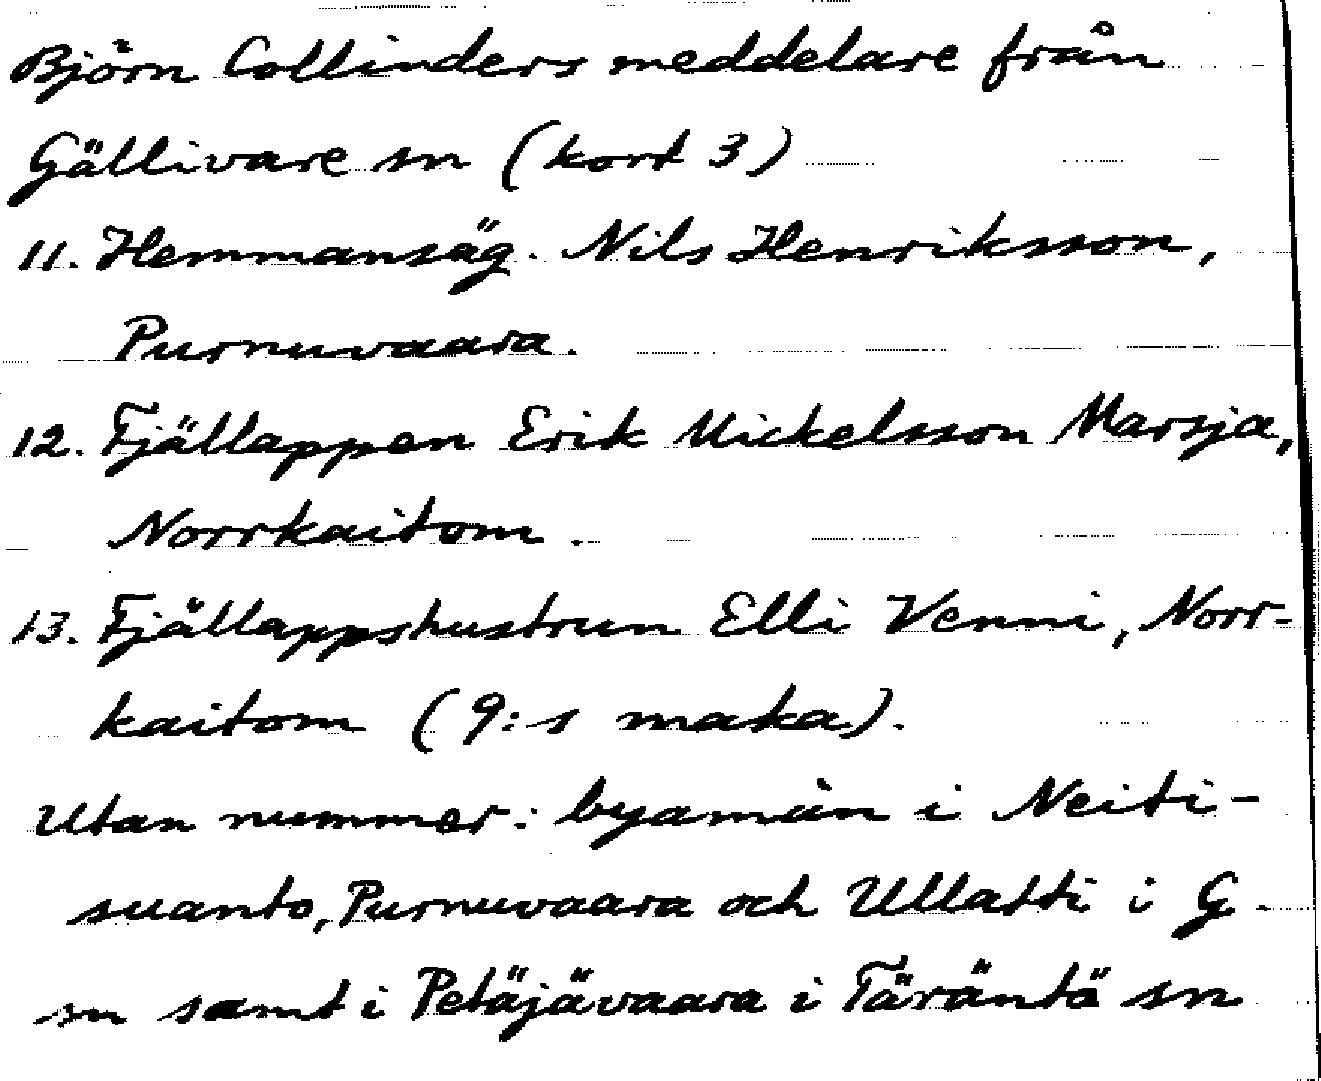 Björn Collinders meddelare från
Gällivare sn (kort 3)
11. Hemmansäg. Nils Henriksson,
Purnuvaara.
12. Fjällappen Erik Mickelsson Marsja,
Norrkaitom.
13. Fjällappshustrun Elli Venni, Norr-
kaitom (9:s maka).
Utan nummer: byamän i Neiti-
suanto, Purnuvaara och Ullatti i G.
sn samt i Petäjävaara i Täräntö sn